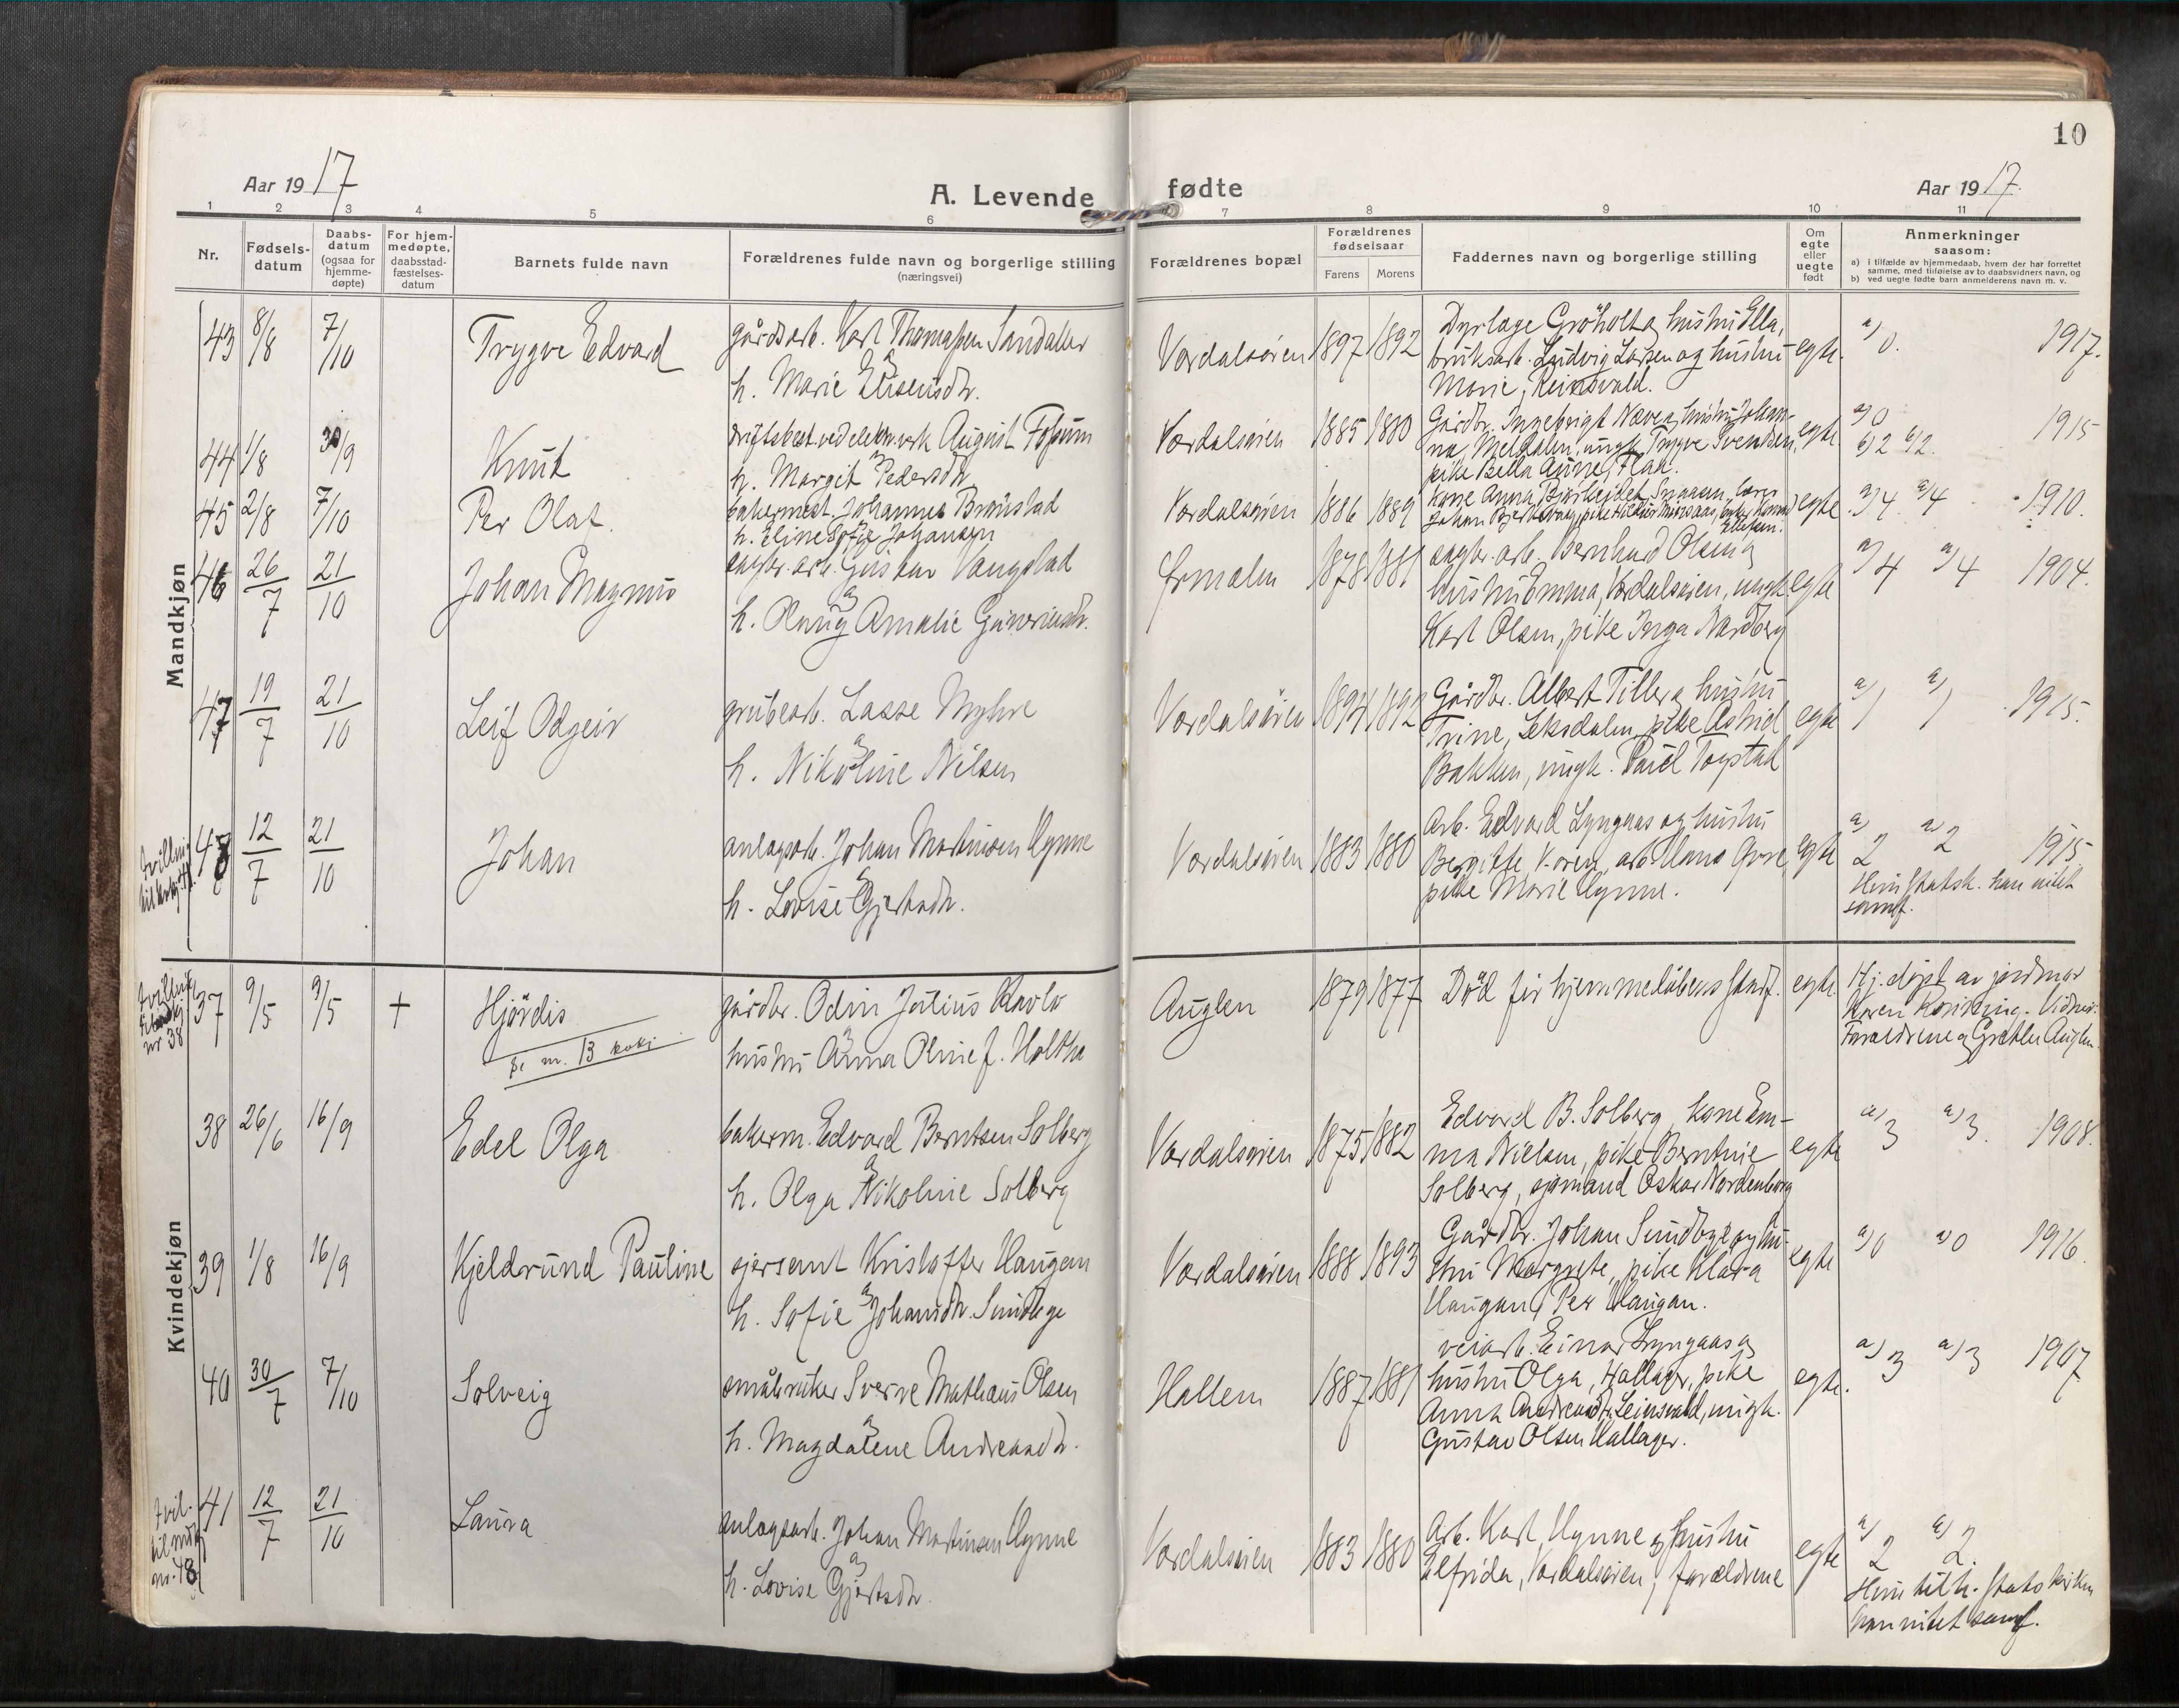 10
Aar 1917
A. Levende fødte
Aar 1917.
1 2 3 4 5 6 7 8 9 10 11
Nr.
Fødsels-
datum
Daabs-
datum
(ogsaa for
hjemme-
døpte)
For hjem-
medøpte,
daabsstad-
fæstelses-
datum
Barnets fulde navn
Forældrenes fulde navn og borgerlige stilling
(næringsvei)
Forældrenes bopæl
Forældrenes
fødselsaar
Farens Morens
Faddernes navn og borgerlige stilling
Om
egte
eller
uegte
født
Anmerkninger
saasom:
a) i tilfælde av hjemmedaab, hvem der har forrettet
samme, med tilføielse av to daabsvidners navn, og
b) ved uegte fødte barn anmelderens navn m. v.
Mandkjøn
43 8/8 7/10 Trygve Edvard
gårdsarb. Karl Thomassen Sandaker
og
h. Marie Eliseusdtr.
Værdalsøren 1897 1892
hushu Ella,
bruksarb. Ludvig Larsen og hushu
Marie, Reinsvald.
egte. a) 0. 1917.
44 1/8 30/9 Knut
driftsbest. ved elektr. verk August Fossum
og
h. Margit Pedersdtr
Værdalsøren 1885 1880
Gårdbr. Ingebrigt Næve og hushu Johan-
na, Meldalen, ungk. Trygve Svendsen,
pike Bella Aune, Flaa.
egte a) 0 b) 2 b) 2. 1915
45 2/8 7/10 Per Olaf.
bakermest. Johannes Brønstad
h. Eline Sofie Johansen
Værdalsøren 1886 1889
kone Anna
Johan
Ellefsen.
egte a) 4. a) 4 1910.
46 26/7 21/10 Johan Magnus
sagbr. arb. Gustav Vangstad
og
h. Olaug Amalie
Ørmelen 1878 1881
sagbr. arb. Bernhard Olsen og
hushu Emma, Værdalsøren, ungk
Karl Olsen, pike Inga Nordberg
egte a) 4 a) 4 1904.
47 19/7 21/10 Leif Odgeir
grubearb. Lasse Myhre
og
h. Nikoline Nilsen
Værdalsøren 1894 1892
Gårdbr. Albert Tiller og hushu
Trine, Leksdalen, pike Astrid
Bakken, ungk. Paul Togstad
egte a) 1 a) 1 1915.
tvilling
48 12/7 21/10 Johan
anlagsarb. Johan Martinsen Hynne
og
h. Lovise Gjertsdtr.
Værdalsøren 1883 1880
Arb. Edvard Lyngaas og hushu
Bergitte, V.øren, arb. Hans
pike Marie Hynne.
egte a) 2 a) 2 1915.
Hun statsk. han utet
samf.
Kvindekjøn
tvilling
nr 38
37 9/5 9/5 + Hjørdis
se m. 13
gårdbr. Odin Julius
og
hushu Anna Oline f. Holthe
Auglen 1879 1877
Død før hjemmedåbens stadf.
egte. Hj. døpt av jordmor
Karen Vidner:
Forældrene og Grethe Auglen.
38 26/6 16/9 Edel Olga
bakerm. Edvard Berntsen Solberg
og
h. Olga Nikoline Solberg
Værdalsøren 1875 1882
Edvard B. Solberg, kone Em-
ma Nielsen, pike Berntine
Solberg, sjømand Oskar Nordenborg
egte a) 3 a) 3. 1908.
39 1/8 16/9 Kjeldrund Pauline
sjersant Kristoffer Haugan
og
h. Sofie Johansdtr. Sundbye
Værdalsøren 1888 1893
Gårdbr. Johan Sundbye og hu-
shu Margrete, pike Klara
Haugan, Per Haugan.
egte a) 0 a) 0 1916
40 30/7 7/10 Solveig
småbruker Sverre Mathæus Olsen
og
h. Magdalene Andreasdtr.
Hallem 1887 1881
veiarb. Einar Lyngaas og
hushu Olga, Hallager, pike
Anna Andreasdtr. Leinsvald, ungk.
Gustav Olsen Hallager.
egte. a) 3 a) 3 1907
tvil.
til mdkj
nr. 48
41 12/7 21/10 Laura
anlagsarb. Johan Martinsen Hynne
og
h. Lovise Gjertsdtr.
Værdalsøren 1883 1880
Arb. Karl Hynne og hushu
Elfrida, Værdalsøren, forældrene
egte a) 2 a) 2.
Hun tilh. statskirken
han utet samf.